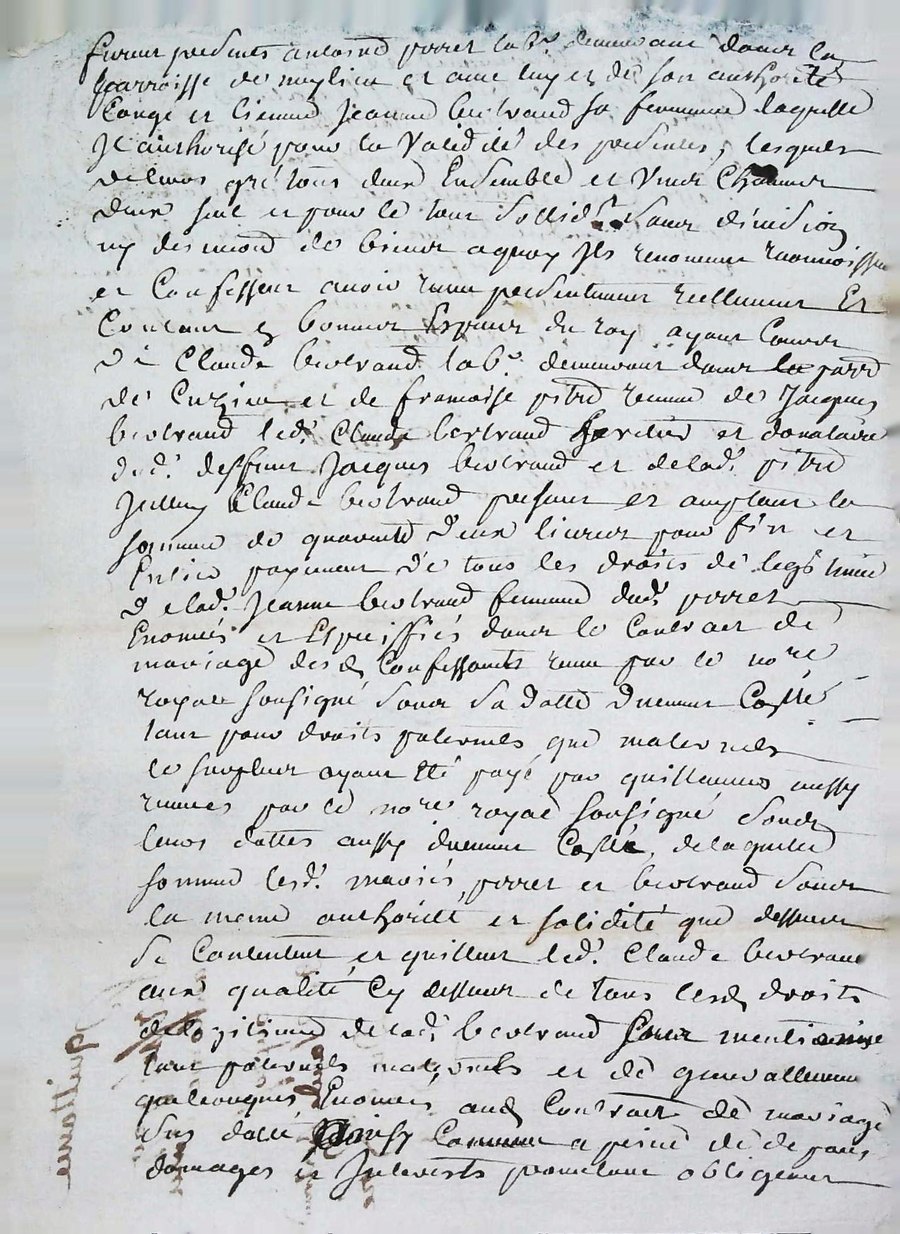 furent presents antoine porret lab.r demeurant dans la
parroisse de meplieu et avec luy et de son authorité
Congé et licence jeanne bertrand sa femme laquelle
Il authorise pour la validité des presentes, lesquels
de leurs gré tous deux Ensemble et Lun Chacun
deux seul et pour le tout sollid.t sans division
ny discution de biens a quoy Ils renoncent reconnoissent
et Confessent avoir receu presentement reellement Et
Contant en bonnes Especes du roy ayant Cours
de Claude bertrand lab.r demeurant dans la parr.
de et de francoise receue de Jacques
bertrand led.t Claude bertrand heritier et donataire
dud.t deffunt Jacques bertrand et delad.t
Icelluy Claude bertrand present et acceptant la
somme de quarente deux livres pour fin et
Entier payement de tous les droits de legitime
delad.t Jeanne bertrand femme dud.t porret
Enoncés et Especiffiés dans le Contract de
mariage desd Confessants receu par le no.re
royal soussigné sous sa datte duement Collé
tant pour droits paternels que maternels
le surplus ayant été payé par quittances aussy
receues par le no.re royal soussigné sous
leurs dattes aussy duement Collé, delaquelle
somme lesd.t mariés porret et bertrand sous
la meme authorité et solidité que dessus
se Contentent et quittent led.t Claude bertrand
aux qualité Cy dessus de tous lesd droits
de legitime delad.t bertrand mentionne
tant paternels maternels et de generallement
quelconques Enoncés aud Contract de mariage
sus datté Comme a peine de de pens
domages et Interests promettant obligeant
quittance